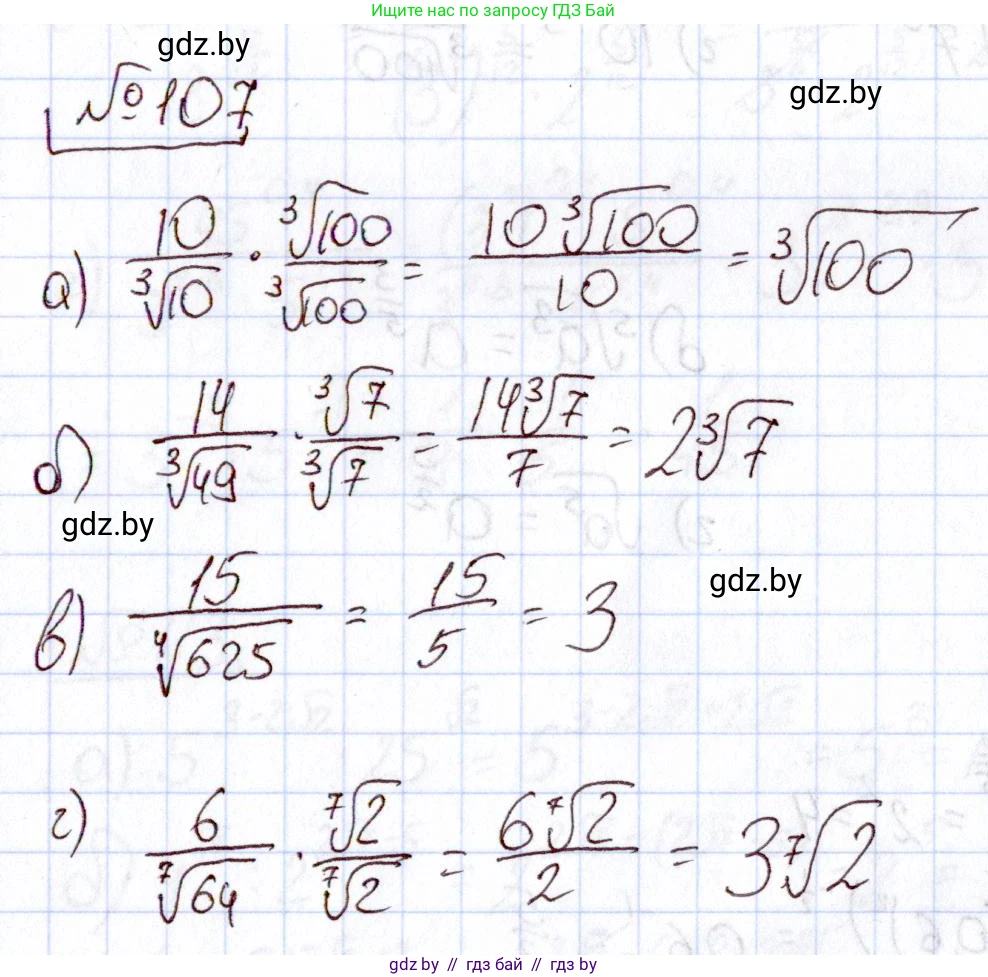 Ищите нас по запросу ГДЗ Бай
gdz.by
№107
gdz.by
а) 10/∛10 · ∛100/∛100 = 10∛100/10 = ∛100
б) 14/∛49 · ∛7/∛7 = 14∛7/7 = 2∛7
gdz.by
в) 15/∜625 = 15/5 = 3
gdz.by
г) 6/⁷√64 · ⁷√2/⁷√2 = 6⁷√2/2 = 3⁷√2
gdz.by // гдз бай // gdz.by